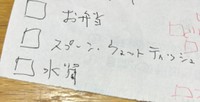 お弁当
スプーン、ウェットティッシュ
水筒